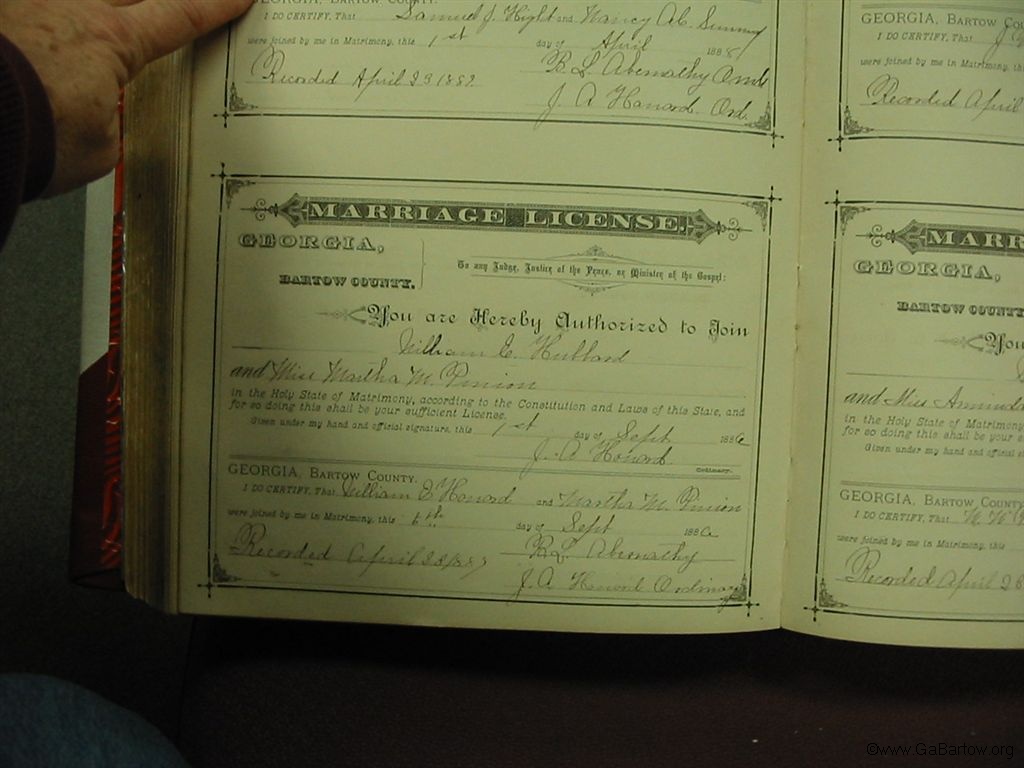 GEORGIA, BARTOW COUNTY.
I DO CERTIFY, That Samuel J. Hight and Nancy
were joined by me in Matrimony, this 1st day of April 188
Recorded April 23 1887. B. L. Abernathy
J. A. Howard Ord.
MARRIAGE LICENSE.
GEORGIA,
BARTOW COUNTY.
To any Judge, Justice of the Peace, or Minister of the Gospel:
You are Hereby Authorized to Join
William E. Hubbard
and Miss Martha M. Pinion
in the Holy State of Matrimony, according to the Constitution and Laws of this State, and
for so doing this shall be your sufficient License.
Given under my hand and official signature, this 1st day of Sept 1886
J. A. Howard Ordinary.
GEORGIA, BARTOW COUNTY.
I DO CERTIFY, That William E Howard and Martha M. Pinion
were joined by me in Matrimony, this 6th day of Sept 1886
Recorded April 23 1887 B. L. Abernathy
J. A. Howard Ordinary
GEORGIA, BARTOW
I DO CERTIFY, That
were joined by me in Matrimony, this
Recorded April
MARR
GEORGIA,
BARTOW COUNTY
You
and Miss
in the Holy State of Matrimony
for so doing this shall be your
Given under my hand and official
GEORGIA, BARTOW COUNTY
I DO CERTIFY, That
were joined by me in Matrimony, this
Recorded April 26
©www.GaBartow.org